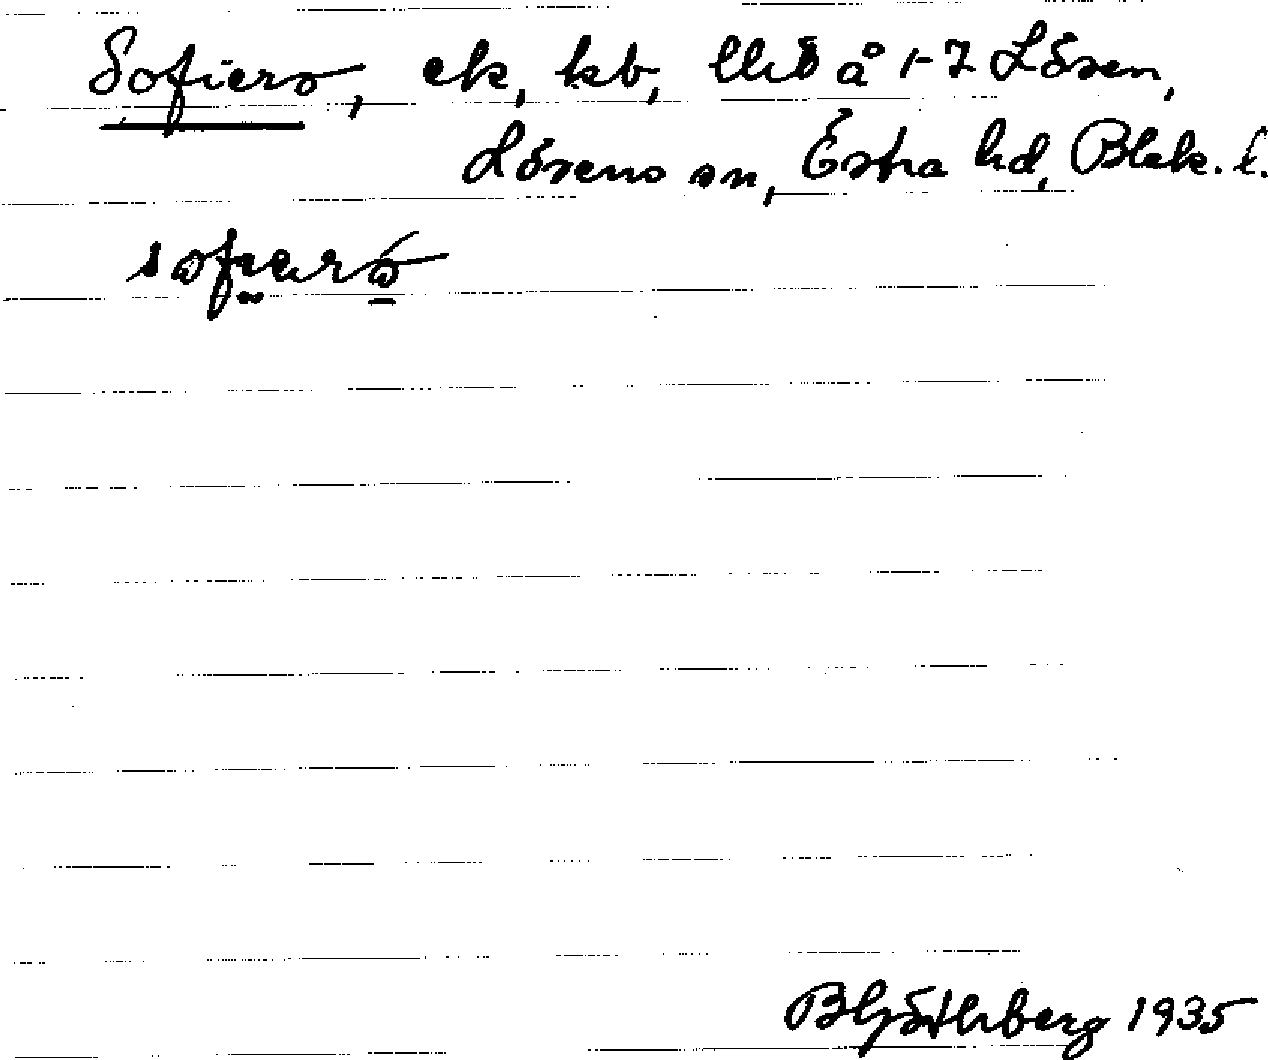 Sofiero, ek, kb, lht å 1-7 Lösen,
Lösens sn, Östra hd, Blek. l.
sofiærō
B Göthberg 1935